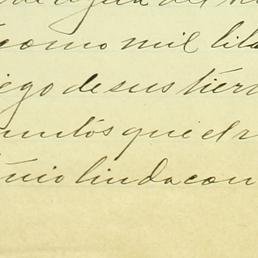 de agua del
como mil lit
iego de sus tierr
untos que el r
nio linda con